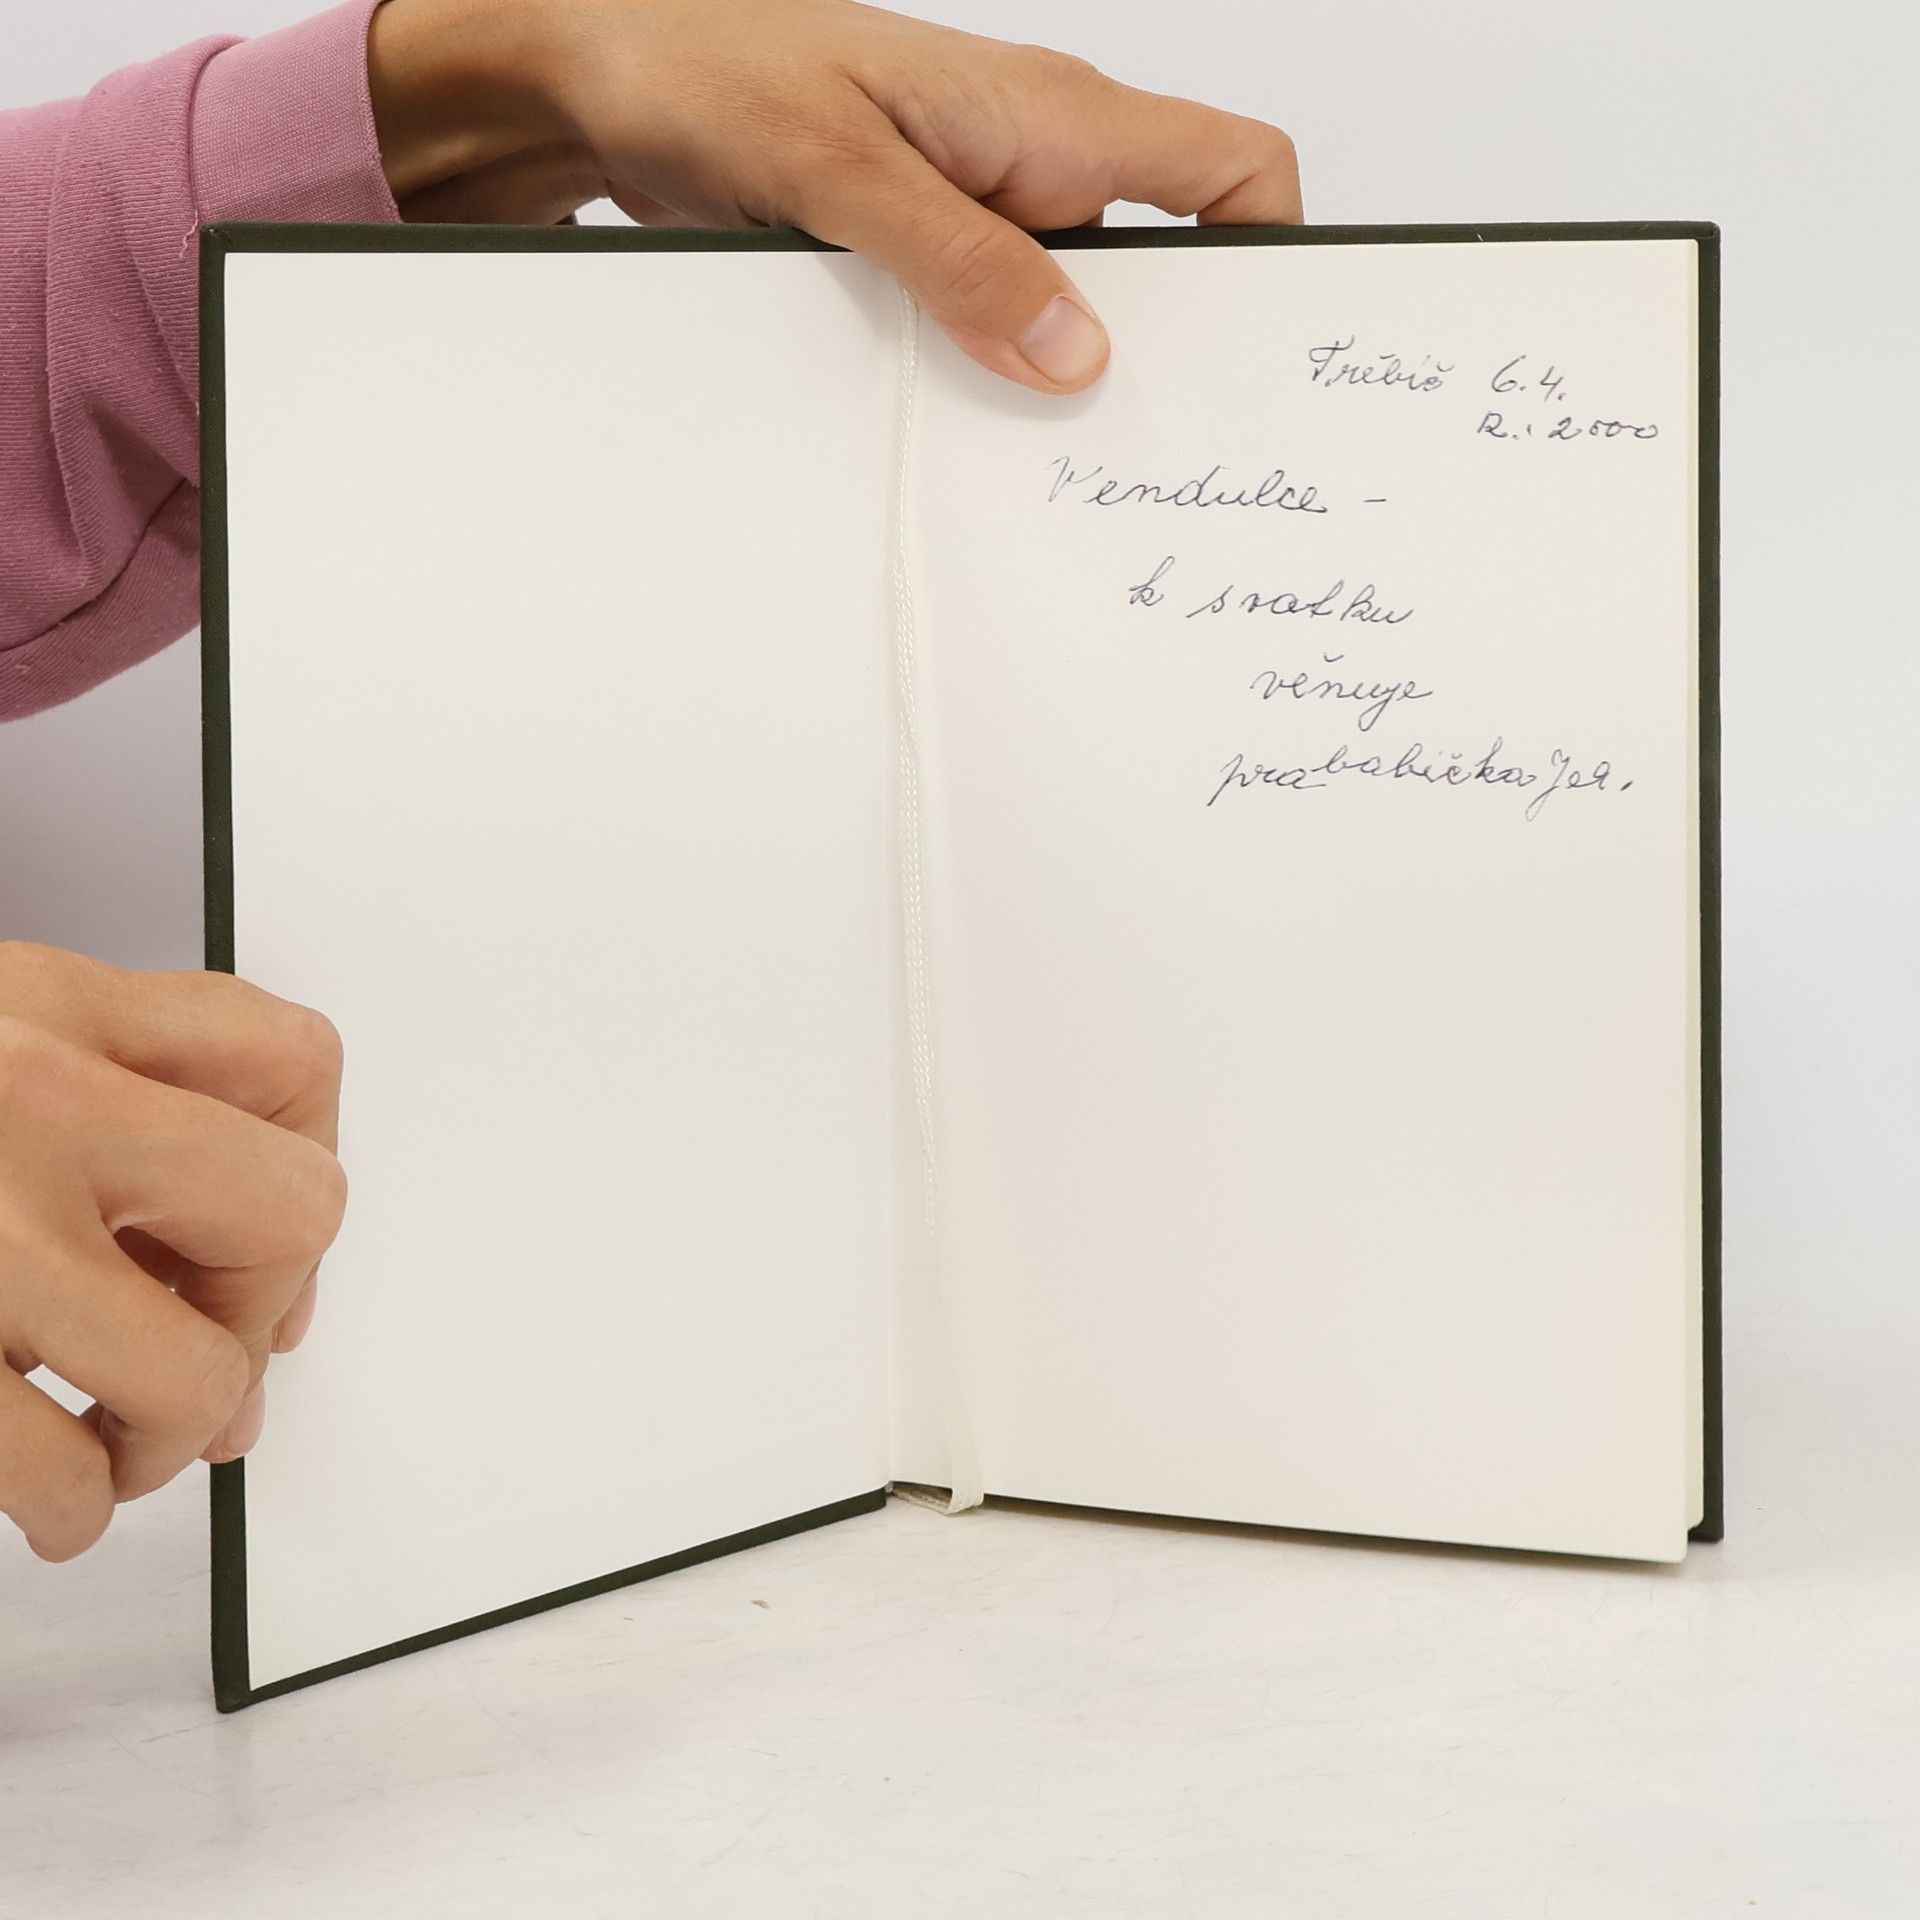 Třebíč 6.4.
R.: 2000
Vendulce -
k svátku
věnuje
prababička